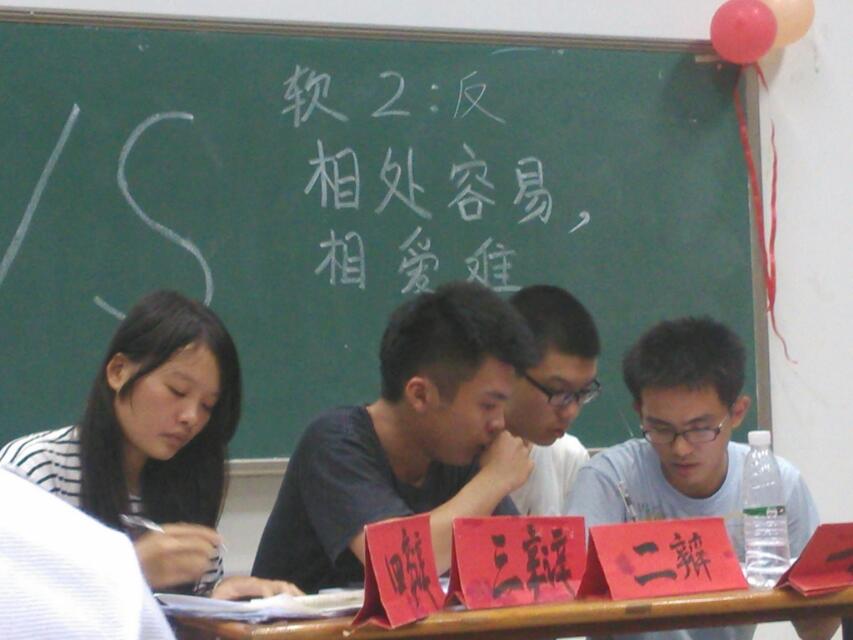 VS
软2:反
相处容易,
相爱难
四辩
三辩
二辩
一